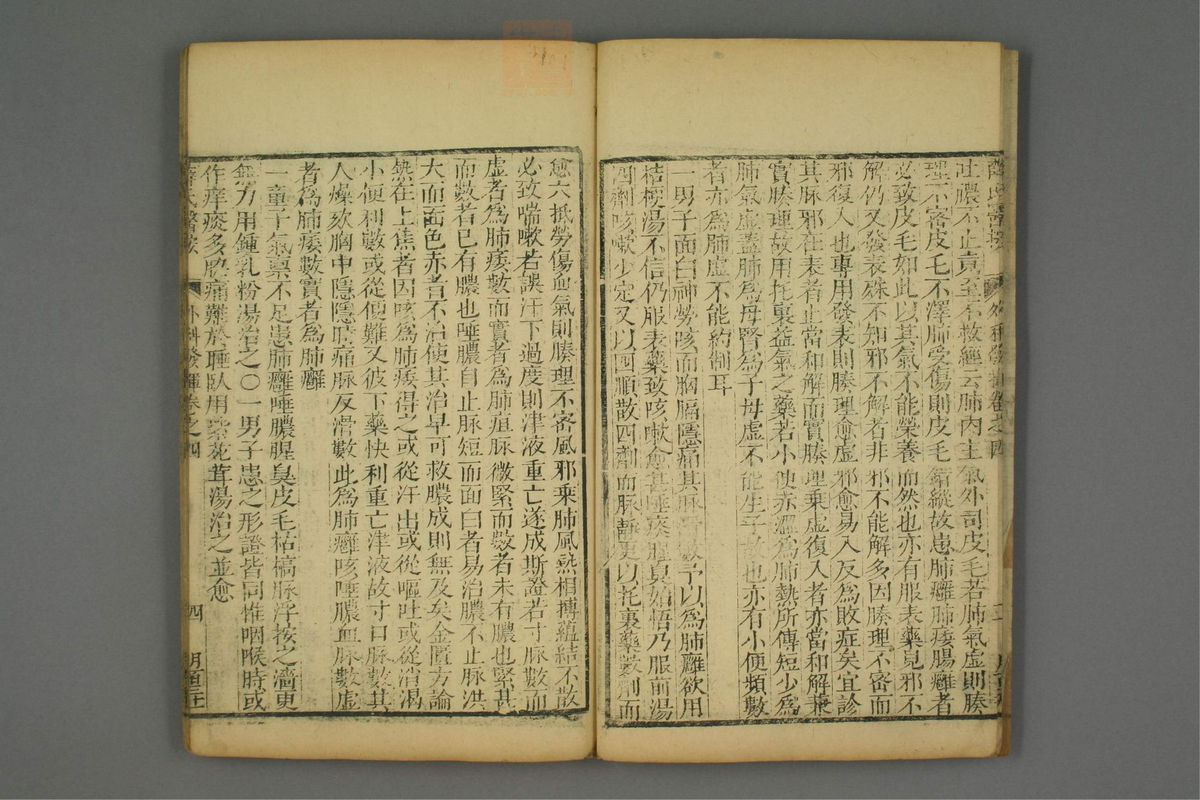 薛氏醫按 外科發揮卷之四
吐膿不止竟至不救經云肺內主氣外司皮毛若肺氣虛則腠
理不密皮毛不澤肺受傷則皮毛錯縱故患肺癰肺痿腸癰者
必致皮毛如此以其氣不能榮養而然也亦有服表藥見邪不
解仍又發表殊不知邪不解者非邪不能解多因腠理不密而
邪復入也專用發表則腠理愈虛邪愈易入反為敗症矣宜診
其脉邪在表者止當和解而實腠理乘虛復入者亦當和解兼
實腠理故用托裏益氣之藥若小便赤澀為肺熱所傳短少為
肺氣虛蓋肺為母腎為子母虛不能生子故也亦有小便頻數
者亦為肺虛不能約制耳
一男子面白神勞咳而胸膈隱痛其脉滑數予以為肺癰欲用
桔梗湯不信仍服表藥致咳嗽愈甚唾痰腥臭始悟乃服前湯
四劑咳嗽少定又以四順散四劑而脉靜更以托裏藥數劑而
愈大抵勞傷血氣則腠理不密風邪乘肺風熱相搏蘊結不散
必致喘嗽若誤汗下過度則津液重亡遂成斯證若寸脉數而
虛者為肺痿數而實者為肺疽脉微緊而數者未有膿也緊甚
而數者已有膿也唾膿自止脉短而面白者易治膿不止脉洪
大而面色赤者不治使其治早可救膿成則無及矣金匱方論
熱在上焦者因咳為肺痿得之或從汗出或從嘔吐或從消渴
小便利數或從便難又彼下藥快利重亡津液故寸口脉數其
人燥欬胸中隱隱時痛脉反滑數此為肺癰咳唾膿血脉數虛
者為肺痿數實者為肺癰
一童子氣稟不足患肺癰唾膿腥臭皮毛枯槁脉浮按之濇更
無力用鍾乳粉湯治之〇一男子患之形證皆同惟咽喉時或
作痒痰多脇痛難於睡臥用紫菀茸湯治之並愈
薛氏醫按 外科發揮卷之四 四